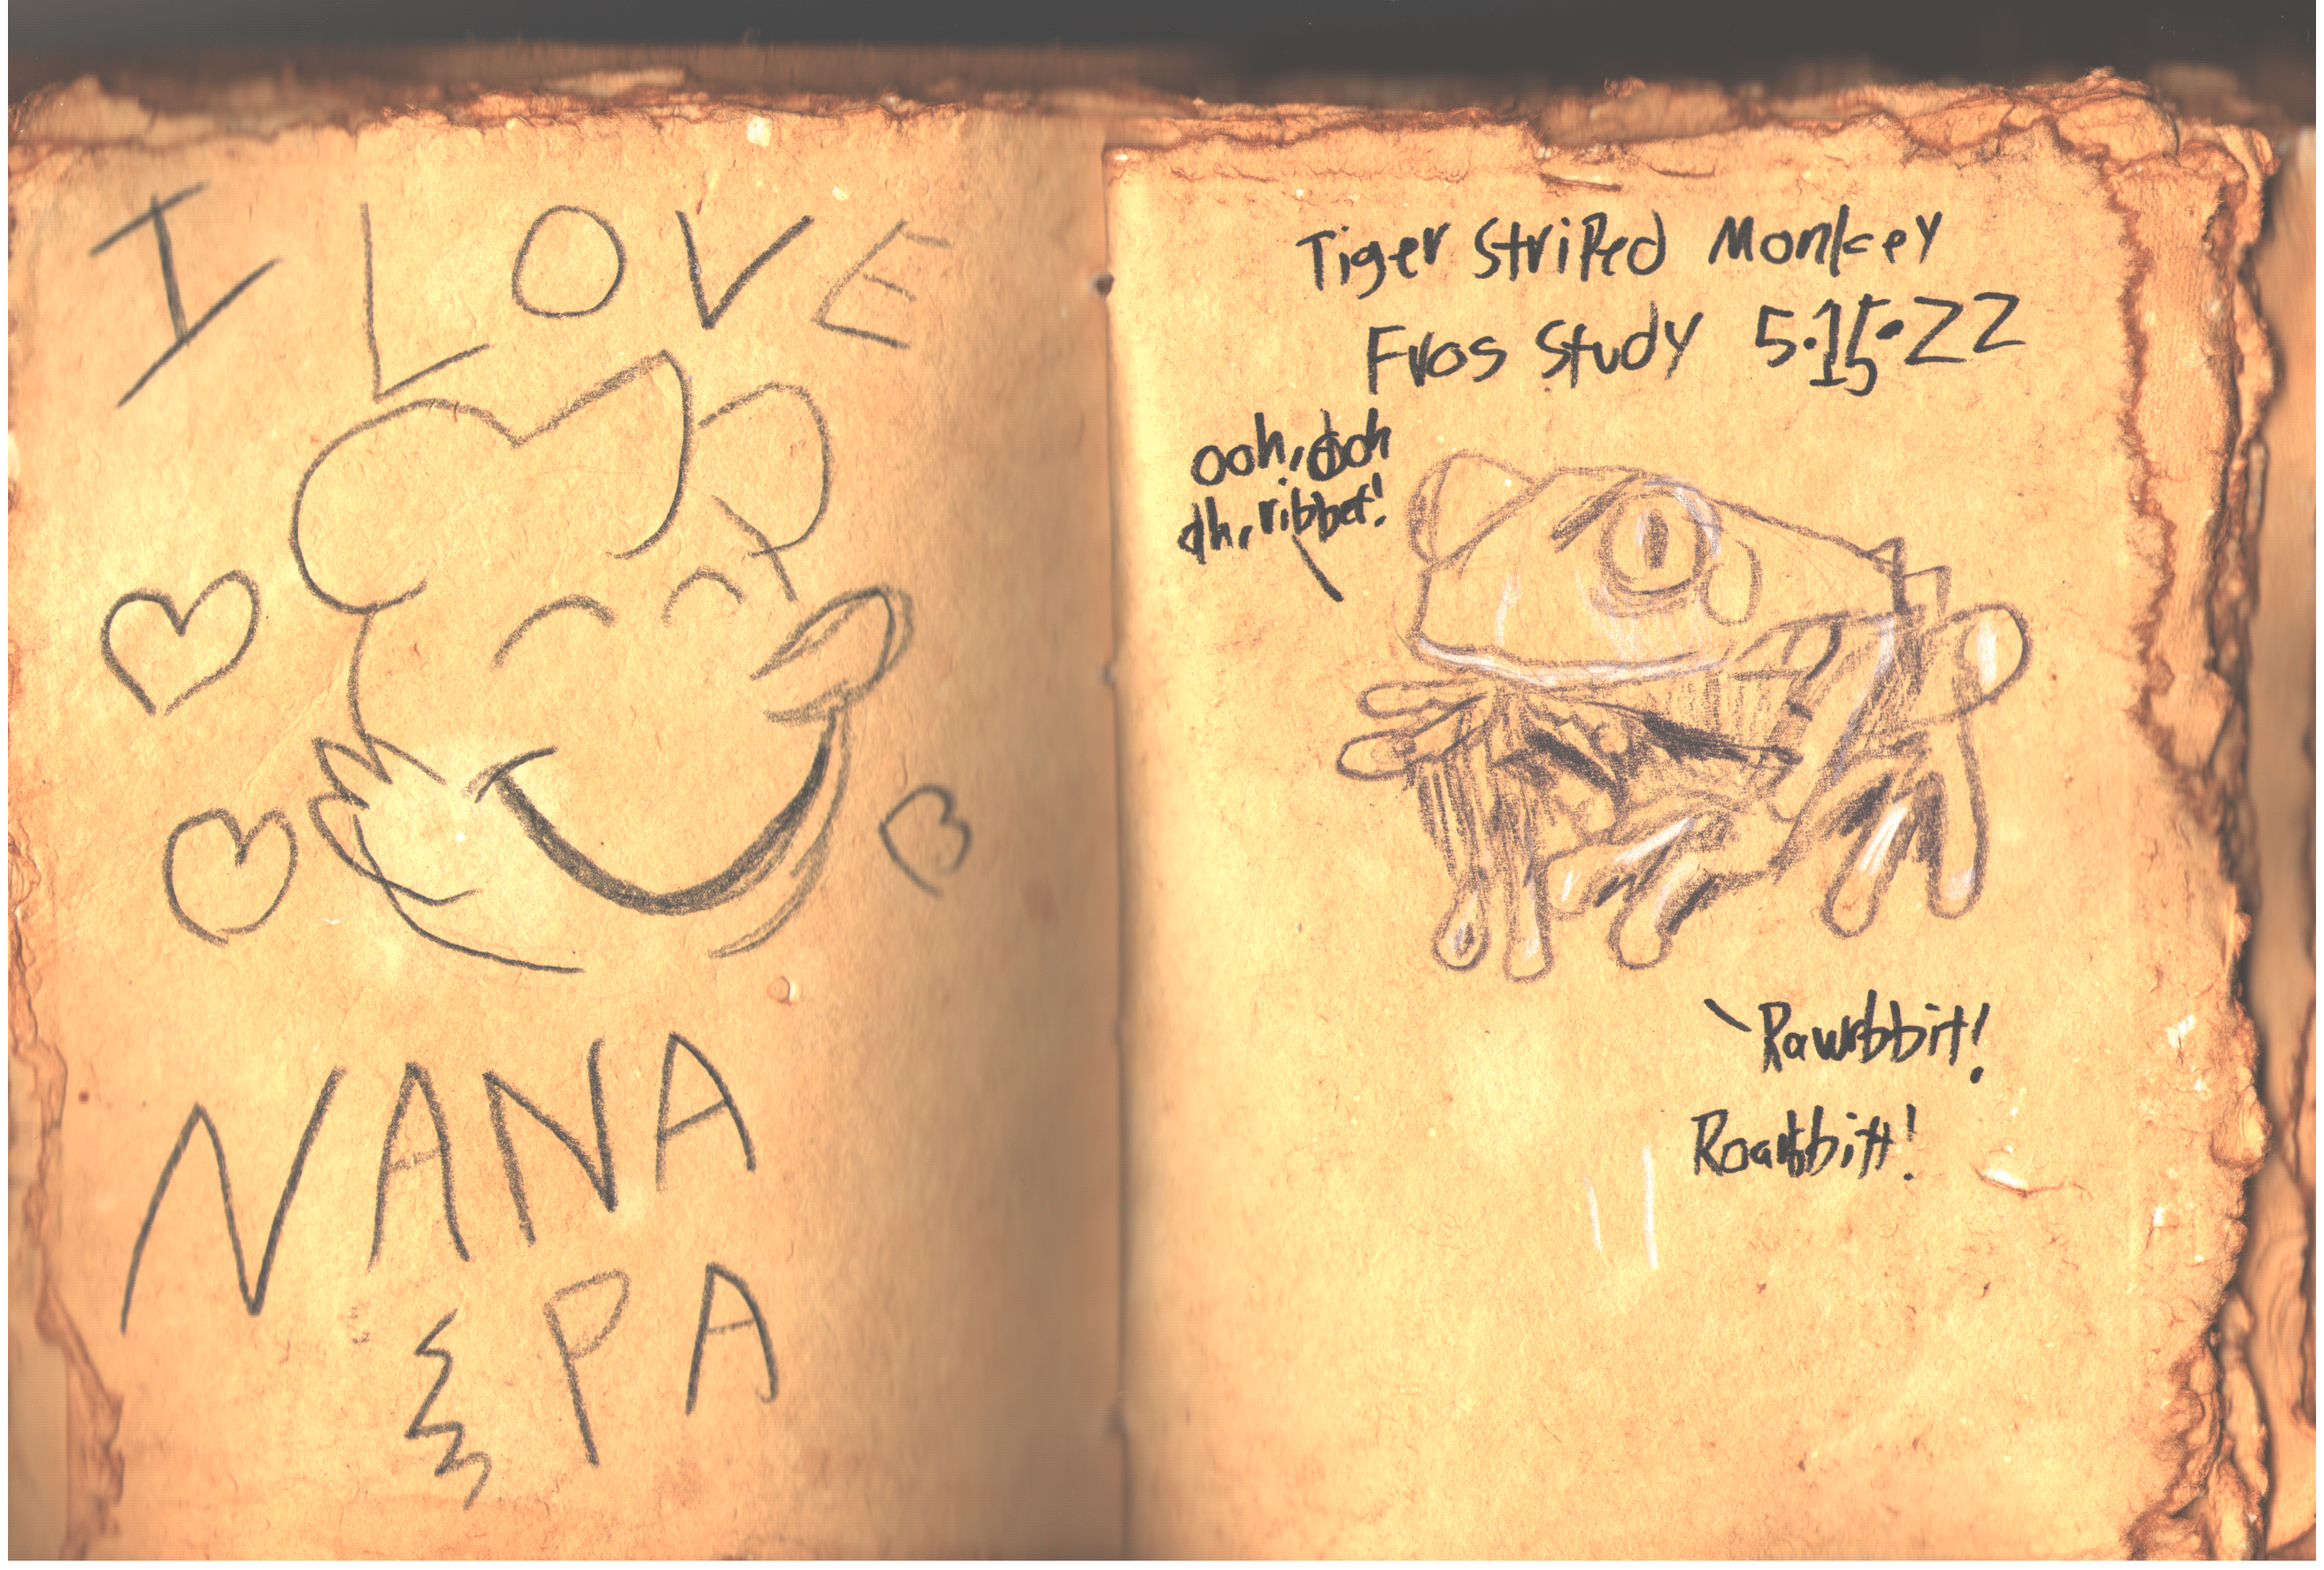 I LOVE
NANA
& PA
Tiger Striped Monkey
Frog Study 5.15.22
ooh, ooh
ah, ribbet!
Rawrbbit!
Roarbbitt!